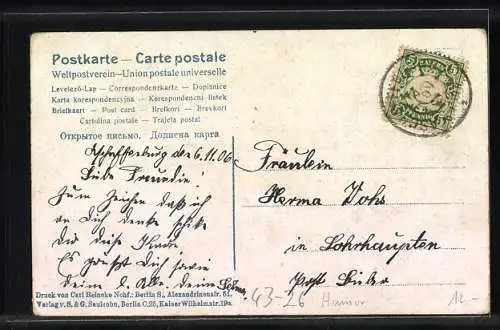 Postkarte — Carte postale
Weltpostverein—Union postale universelle
Levelező-Lap — Correspondenzkarte — Dopisnice
Karta korespondencyjna — Korespondenční lístek
Briefkaart — Post card — Brefkort — Brevkort
Cartolina postale — Tarjeta postal
Открытое письмо. Дописна карта
Aschaffenburg des 6.11.06
Liebe Freundin!
Zum Zeichen daß ich
an Dich denke schike
Dir diese Karte
Es grüßt Dich sowie
deine l. Alle. deine
Fräulein
Herma Johs
in Lohrhaupten
Post
Druck von Carl Reinecke Nchf.: Berlin S., Alexandrinenstr. 51.
Verlag v. S. & G. Saulsohn, Berlin C.25, Kaiser Wilhelmstr. 19a.
43-26 Humor
12.-